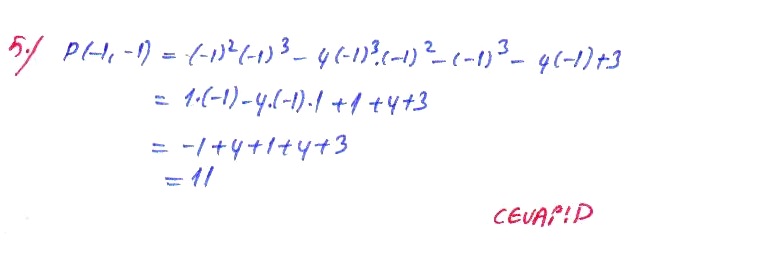 5-) P(-1, -1) = (-1)²(-1)³ - 4(-1)³.(-1)² - (-1)³ - 4(-1)+3
= 1.(-1)-4.(-1).1 +1 +4+3
= -1+4+1+4+3
= 11
CEVAP!D